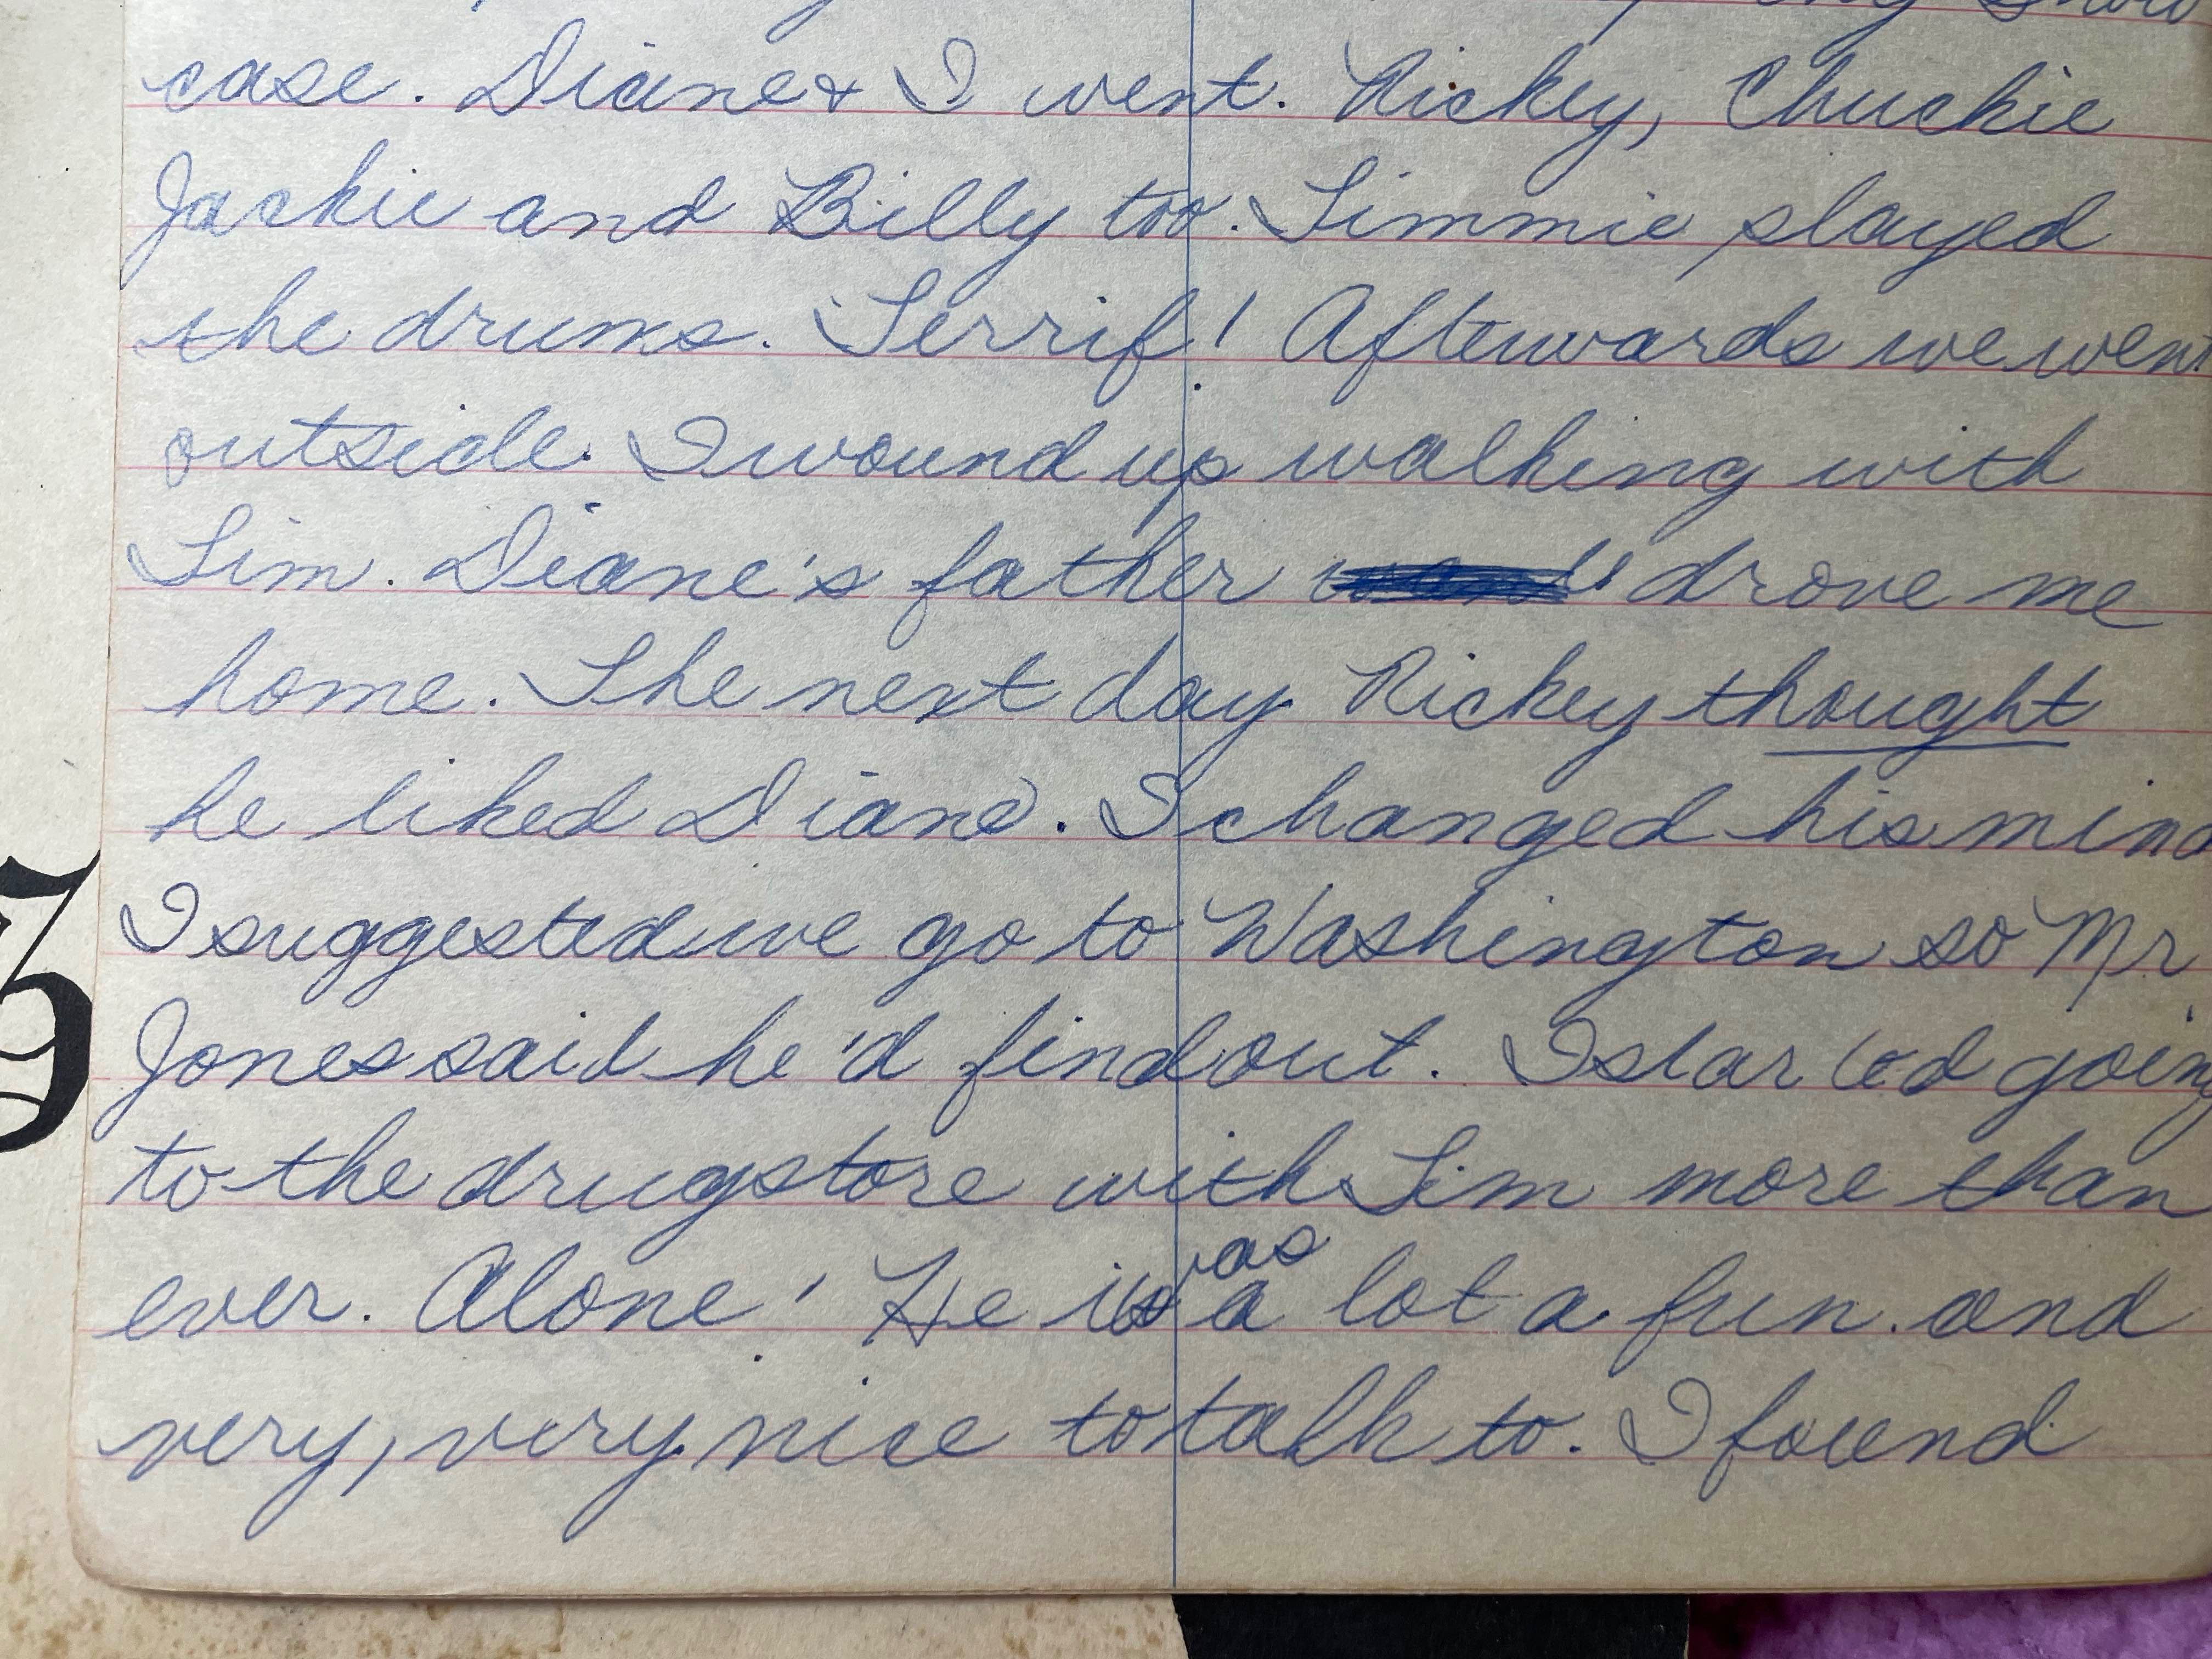 case. Diane & I went. Rickey, Chuckie
Jackie and Billy too. Timmie played
the drums. Terrif! Afterwards we went
outside. I wound up walking with
Tim. Diane's father drove me
home. The next day Rickey thought
he liked Diane. I changed his mind
I suggested we go to Washington so Mr.
Jones said he'd find out. I started going
to the drugstore with Tim more than
ever. Alone! He was a lot a fun. and
very, very nice to talk to. I found